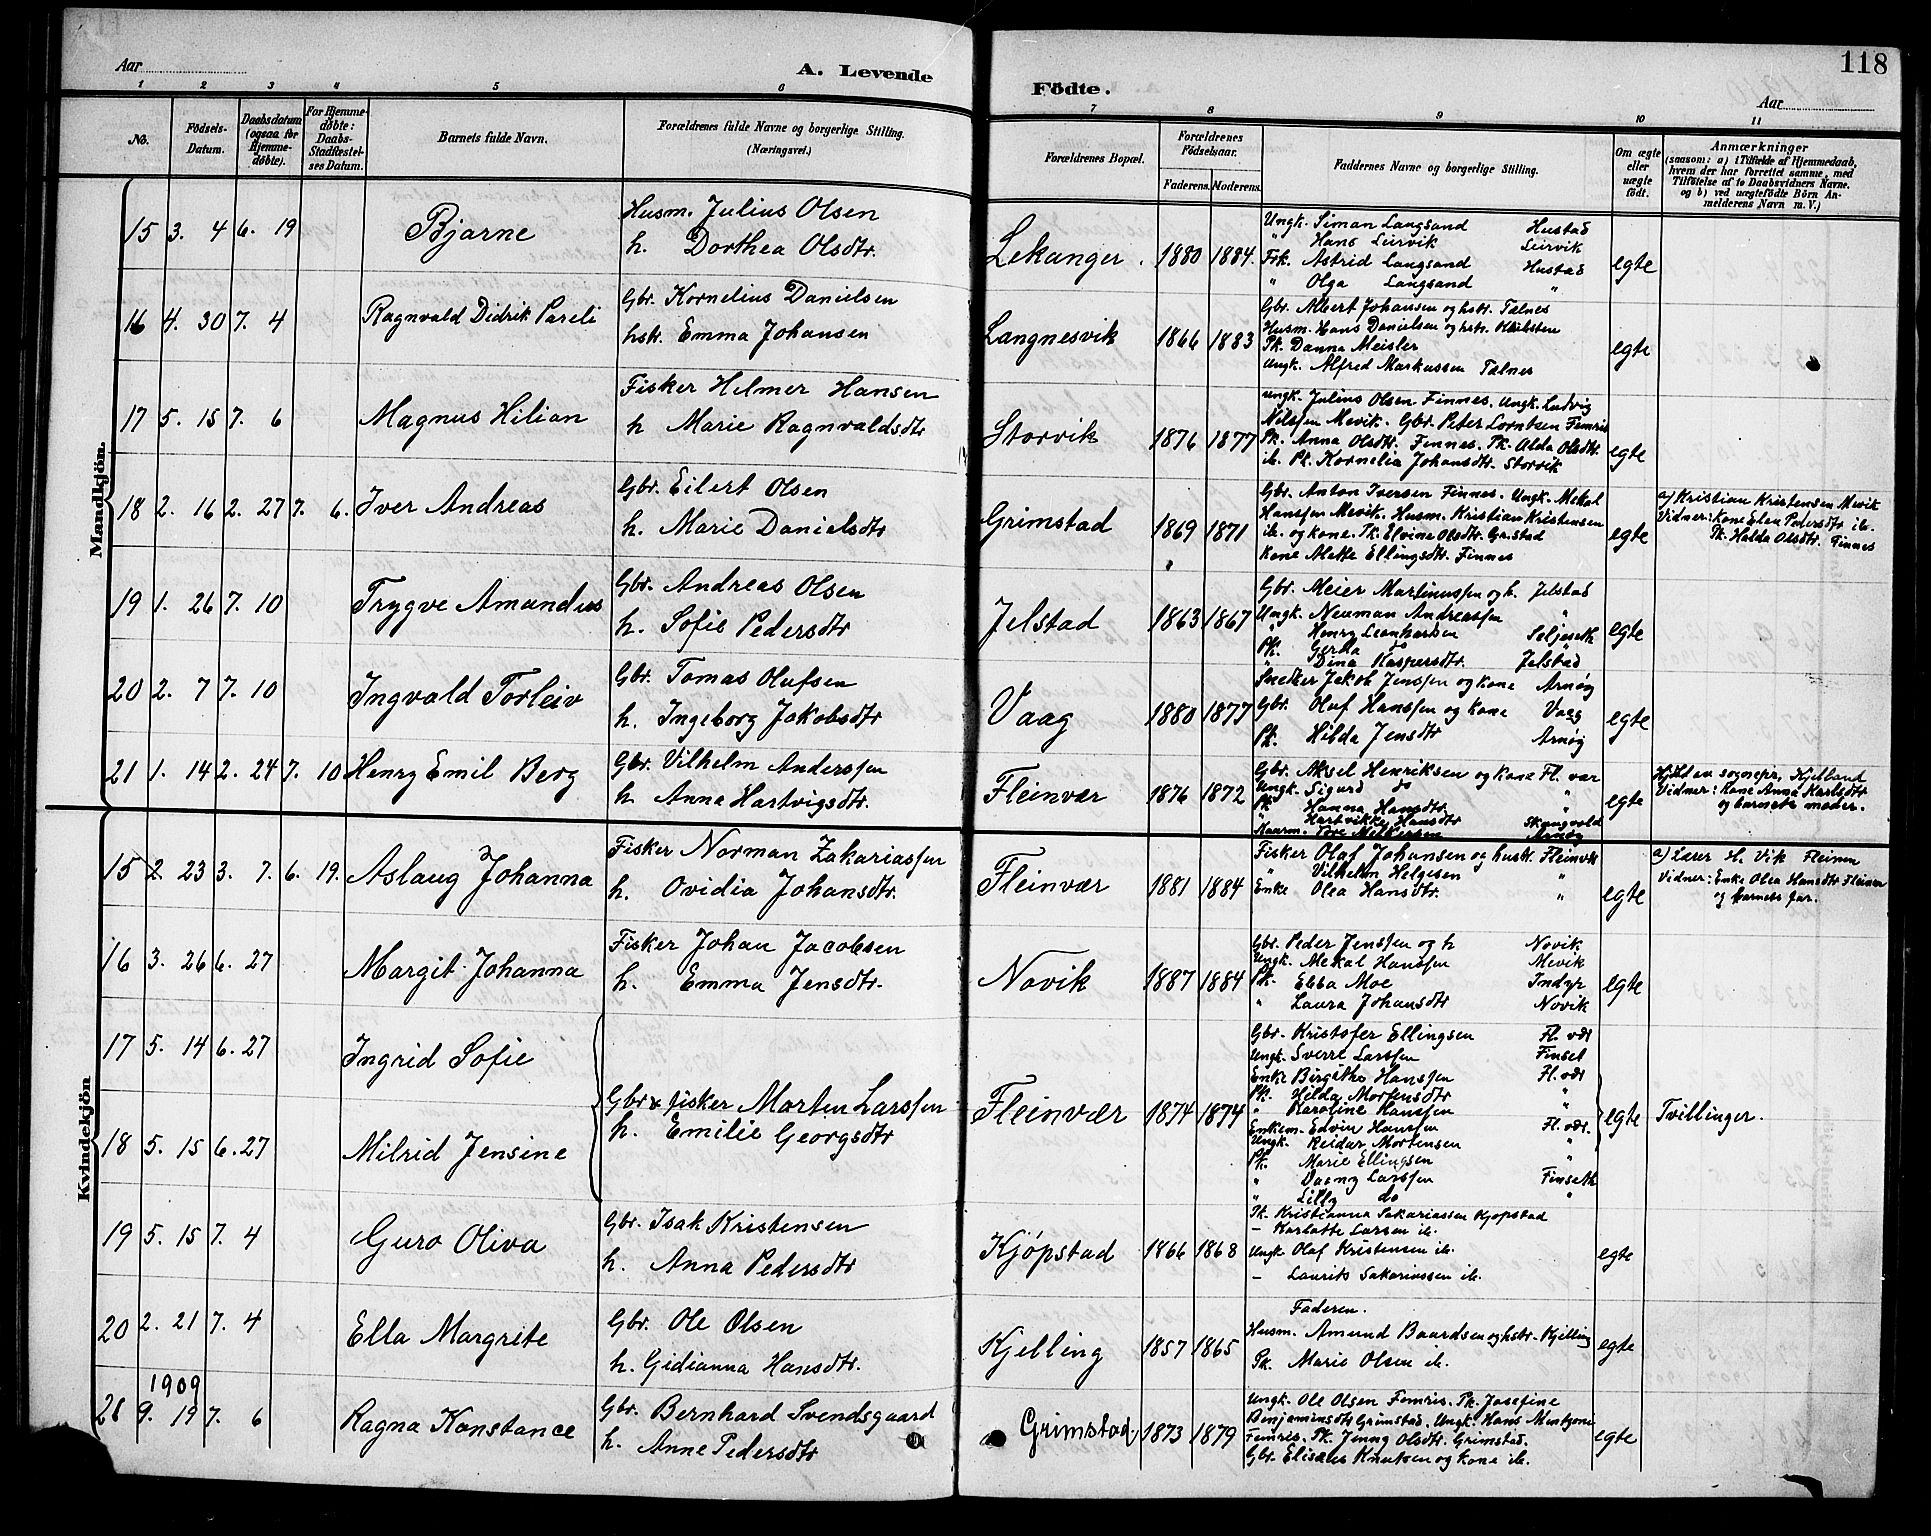 118
Aar
A. Levende
Födte.
Aar
1 2 3 4 5 6 7 8 9 10 11
No.
Födsels-Datum.
Daabsdatum (ogsaa for Hjemme-döbte).
For Hjemme-döbte: Daabs-Stadfæstel-ses Datum.
Barnets fulde Navn.
Forældrenes fulde Navne og borgerlige Stilling.
(Næringsvei.)
Forældrenes Bopæl.
Forældrenes Födselsaar.
Faderens. Moderens.
Faddernes Navne og borgerlige Stilling.
Om ægte eller uægte födt.
Anmærkninger
(saasom: a) i Tilfælde af Hjemmedaab, hvem der har forrettet samme, med Tilföielse af to Daabsvidners Navne. og b) ved uægtefödte Börn Anmelderens Navn m. V.)
Mandkjön.
15 3. 4 6. 19 Bjarne
Husm. Julius Olsen
h. Dorthea Olsdtr.
Lekanger. 1880 1884.
Ungk. Simon Langsand Hustad
" Hans Leirvik Leirvik
Frk. Astrid Langsand Hustad
" Olga Langsand "
egte
16 4. 30 7. 4 Ragnvald Didrik Pareli
Gbr. Kornelius Danielsen
hsk. Emma Johansen
Langnesvik 1866 1883
Gbr. Albert Johansen og hstr. Talnes
Husm. Hans Danielsen og hstr.
Pk. Danna Meisler
Ungk. Alfred Markussen Talnes
egte
17 5. 15 7. 6 Magnus Hilian
Fisker Helmer Hansen
h Marie Ragnvaldsdtr
Storvik 1876 1877
Ungk. Julius Olsen Finnes. Ungk. Ludvig
Nilssen Mevik. Gbr. Peter Lorntsen Femris
Pk. Anna Olsdtr. Finnes. Pk. Alda Olsdtr.
ib. Pk. Kornelia Johansdtr. Storvik
egte
18 2. 16 2. 27 7. 6. Iver Andreas
Gbr. Eilert Olsen
h. Marie Danielsdtr
Grimstad 1869 1871
Gbr. Anton Iversen Finnes. Ungk. Mekal
Hanssen Mevik. Husm. Kristian Kristensen
ib. og kone. Pk. Elvine Olsdtr. Gristad
Kone Mette Ellingsdtr. Finnes
egte
a) Kristian Kristensen Mevik
Vidner: Kone Elen Pedersdtr ib.
Pk. Halda Olsdtr. Finnes
19 1. 26 7. 10 Trygve Amandus
Gbr. Andreas Olsen
h. Sofie Pedersdtr
Jelstad 1863 1867
Gbr. Meier Martinussen og h. Jelstad
Ungk. Neuman Andreassen "
" Henry Leonhardsen Seljeseth
Pk. Gerda do
" Dina Kaspersdtr. Jelstad
egte
20 2. 7 7. 10 Ingvald Torleiv
Gbr. Tomas Olufsen
h. Ingeborg Jakobsdtr
Vaag 1880 1877
Snedker Jakob Jenssen og kone Arnøy
Gbr. Oluf Hanssen og kone Vaag
Pk. Hilda Jensdtr Arnøy
egte
21 1. 14 2. 24 7. 10 Henry Emil Berg
Gbr. Vilhelm Anderssen
h. Anna Hartvigsdtr.
Fleinvær 1876 1872
Gbr. Aksel Henriksen og kone Fl. vær
Ungk. Sigurd do "
Pk. Hanna Hansdtr. "
" Hartvikke Hansdtr Skaugvold
Kaarm. Tore Mikkelsen Arnøy
egte
Hjdt av sognepr. Kjelland
Vidner: Kone Anna Karlsdtr
og barnets moder.
Kvindekjön
15 2. 23 3. 7. 6. 19. Aslaug Johanna
Fisker Norman Zakariassen
h. Ovidia Johansdtr.
Fleinvær 1881 1884
Fisker Olaf Johansen og hustr. Fleinvær
" Vilhelm Helgesen "
Enke Olea Hansdtr. "
egte
a) Lærer H. Vik Fleinen
Vidner: Enke Olea Hansdtr Fleinen
og barnets far.
16 3. 26 6. 27 Margit Johanna
Fisker Johan Jacobsen
h. Emma Jensdtr.
Novik 1887 1884
Gbr. Peder Jenssen og h Novik
Ungk. Mekal Hanssen Mevik
Pk. Ebba Moe Indyr
" Laura Johansdtr Novik
egte
17 5. 14 6. 27 Ingrid Sofie
18 5. 15 6. 27 Milrid Jensine
Gbr & fisker Morten Larssen
h. Emilie Georgsdtr
Fleinvær 1874 1874
Gbr. Kristofer Ellingsen Fl. vær
Ungk. Sverre Larssen Finset
Enke Birgithe Hanssen Fl. vær
Pk. Hilda Mortensdtr "
" Karoline Hanssen "
Enkem. Edvin Hanssen Fl. vær.
Ungk. Reidar Mortensen "
Pk. Marie Ellingsen "
" Dagny Larssen Finseth
" Lilly do "
egte
Tvillinger.
19 5. 15 7. 4 Guro Oliva
Gbr. Isak Kristensen
h. Anna Pedersdtr
Kjøpstad 1866 1868
Pk. Kristianna Sakariassen Kjøpstad
– Karlotte Larsen ib.
Ungk Olaf Kristensen ib.
– Laurits Sakariassen ib.
egte
20 2. 21 7. 4 Ella Margrete
Gbr. Ole Olsen
h. Gidianna Hansdtr.
Kjelling 1857 1865
Faderen.
Husm. Amund Baardsen og hstr. Kjelling
Pk. Marie Olsen ib.
egte
1909
9. 19 7. 6 Ragna Konstance
Gbr. Bernhard Svendsgaard
h. Anne Pedersdtr
Grimstad 1873 1879
Ungk. Ole Olsen Femris. Pk. Josefine
Benjaminsdtr Grimstad. Ungk. Hans Mentzoni
Femres. Pk. Jenny Olsdtr. Grimstad.
Gbr. Eliseus Knutsen og kone ib.
egte